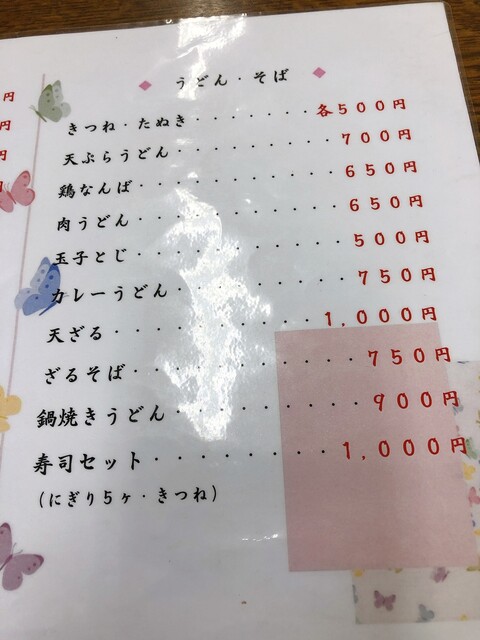 うどん・そば
きつね・たぬき・・・・・・・各500円
天ぷらうどん・・・・・・・・・700円
鶏なんば・・・・・・・・・・・650円
肉うどん・・・・・・・・・・・650円
玉子とじ・・・・・・・・・・・500円
カレーうどん・・・・・・・・・750円
天ざる・・・・・・・・・・1,000円
ざるそば・・・・・・・・・・・750円
鍋焼きうどん・・・・・・・・・900円
寿司セット・・・・・・・・1,000円
(にぎり5ヶ・きつね)
円
円
円